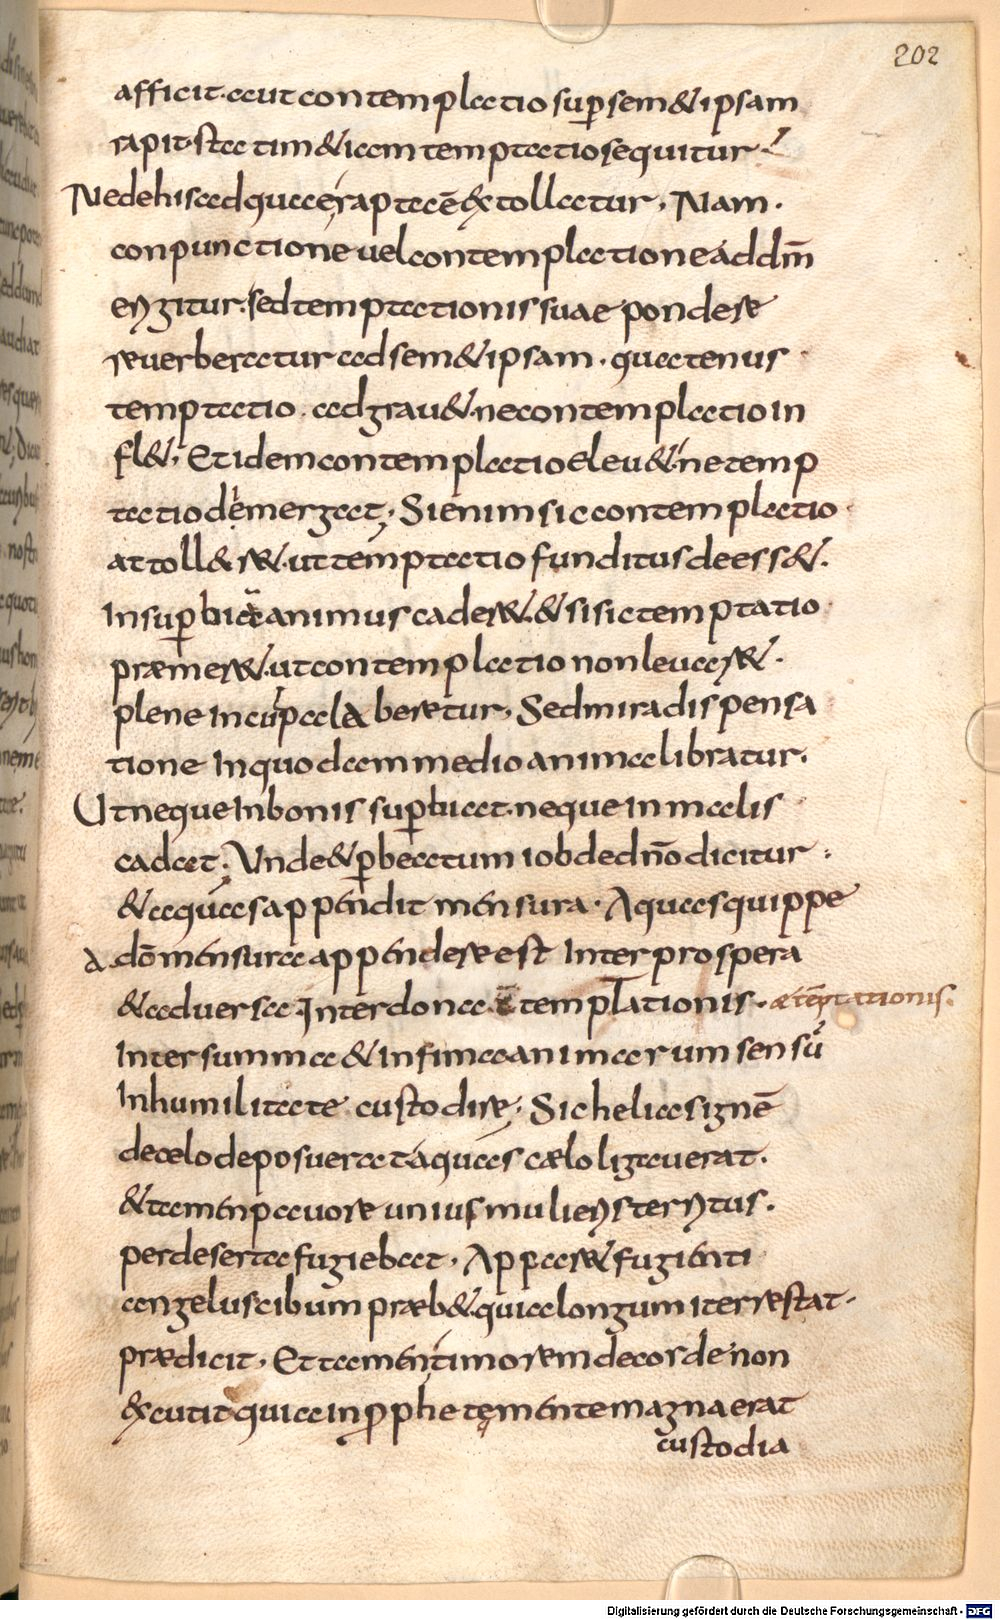 202
afficit. aut contemplatio sup semet ipsam
rapit. statim et iam temptatio sequitur.
Ne de his ad quae rapta ē extollatur, Nam.
conpunctione vel contemplatione ad dm̄
erigitur. sed temptationis suae pondere
reverberatur ad semet ipsam. quatenus
temptatio. adgravet. ne contemplatio in
flet, Et idem contemplatio elevet. ne temp
tatio demergat, Si enim sic contemplatio
attolleret. ut temptatio funditus deesset.
In supbia animus caderet. et si sic temptatio
præmeret. ut contemplatio non levaret.
plene In culpa laberetur, Sed mira dispensa
tione In quodam medio anima libratur.
Ut neque In bonis supbiat. neque in malis
cadat. Unde et p beatum iob de dn̄o dicitur.
et aquas appendit mensura. Aquas quippe
A dōmensura appendere est Inter prospera
et adversa. Inter dona ē temptationis. et tēptationis.
Inter summa et Infima animarum sensū
In humilitate custodire, Sic helias ignē
de cælo deposuerat aquas cælo ligaverat.
et tamen pavore unius mulieris territus.
per deserta fugiebat, Apparet fugienti
angelus cibum præbet. quia longum iter restat.
prædicit, Et tamen timorem de corde non
excutit quia in pphetę mente magna erat
custodia
Digitalisierung gefördert durch die Deutsche Forschungsgemeinschaft - DFG